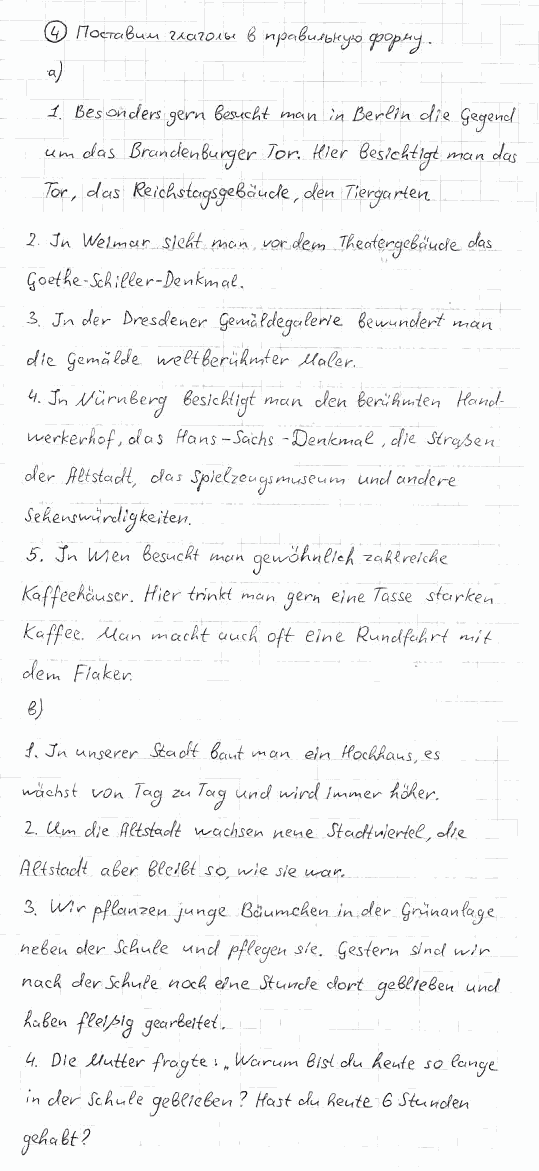 ④ Поставим глаголы в правильную форму.
а)
1. Besonders gern besucht man in Berlin die Gegend
um das Brandenburger Tor. Hier besichtigt man das
Tor, das Reichstagsgebäude, den Tiergarten
2. In Weimar sieht man vor dem Theatergebäude das
Goethe-Schiller-Denkmal.
3. In der Dresdener Gemäldegalerie bewundert man
die Gemälde weltberühmter Maler.
4. In Nürnberg besichtigt man den berühmten Hand-
werkerhof, das Hans-Sachs-Denkmal, die Straßen
der Altstadt, das Spielzeugsmuseum und andere
Sehenswürdigkeiten.
5. In Wien besucht man gewöhnlich zahlreiche
Kaffeehäuser. Hier trinkt man gern eine Tasse starken
Kaffee. Man macht auch oft eine Rundfahrt mit
dem Fiaker.
в)
1. In unserer Stadt baut man ein Hochhaus, es
wächst von Tag zu Tag und wird immer höher.
2. Um die Altstadt wachsen neue Stadtviertel, die
Altstadt aber bleibt so, wie sie war.
3. Wir pflanzen junge Bäumchen in der Grünanlage
neben der Schule und pflegen sie. Gestern sind wir
nach der Schule noch eine Stunde dort geblieben und
haben fleißig gearbeitet.
4. Die Mutter fragte: „Warum bist du heute so lange
in der Schule geblieben? Hast du heute 6 Stunden
gehabt?